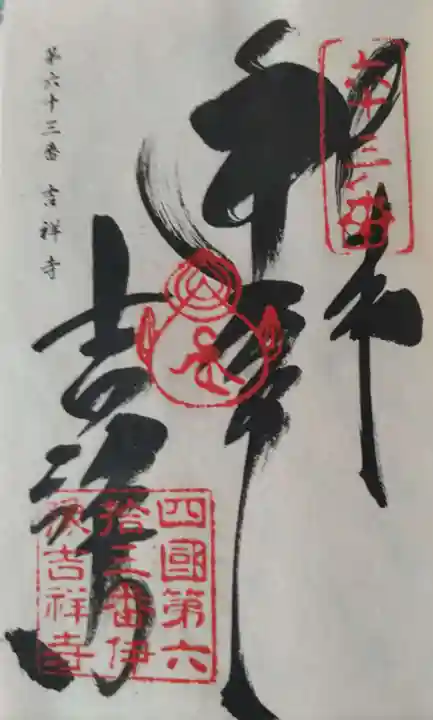 六十三番
奉納
四國第六
拾三番伊
豫吉祥寺
吉祥寺
第六十三番 吉祥寺